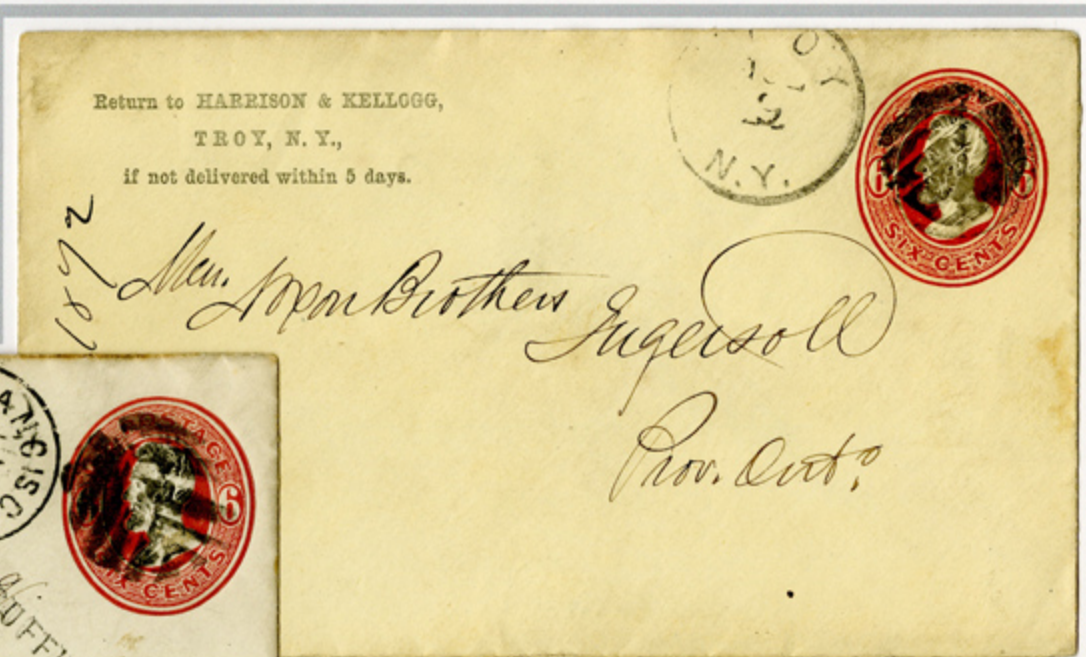 Return to HARRISON & KELLOGG,
TROY, N. Y.,
if not delivered within 5 days.
OY
N.Y.
6 6
SIX CENTS
1872
Noxon Brothers
Ingersoll
Prov. Onto.
ANCISC
POSTAGE
6
IX CENTS